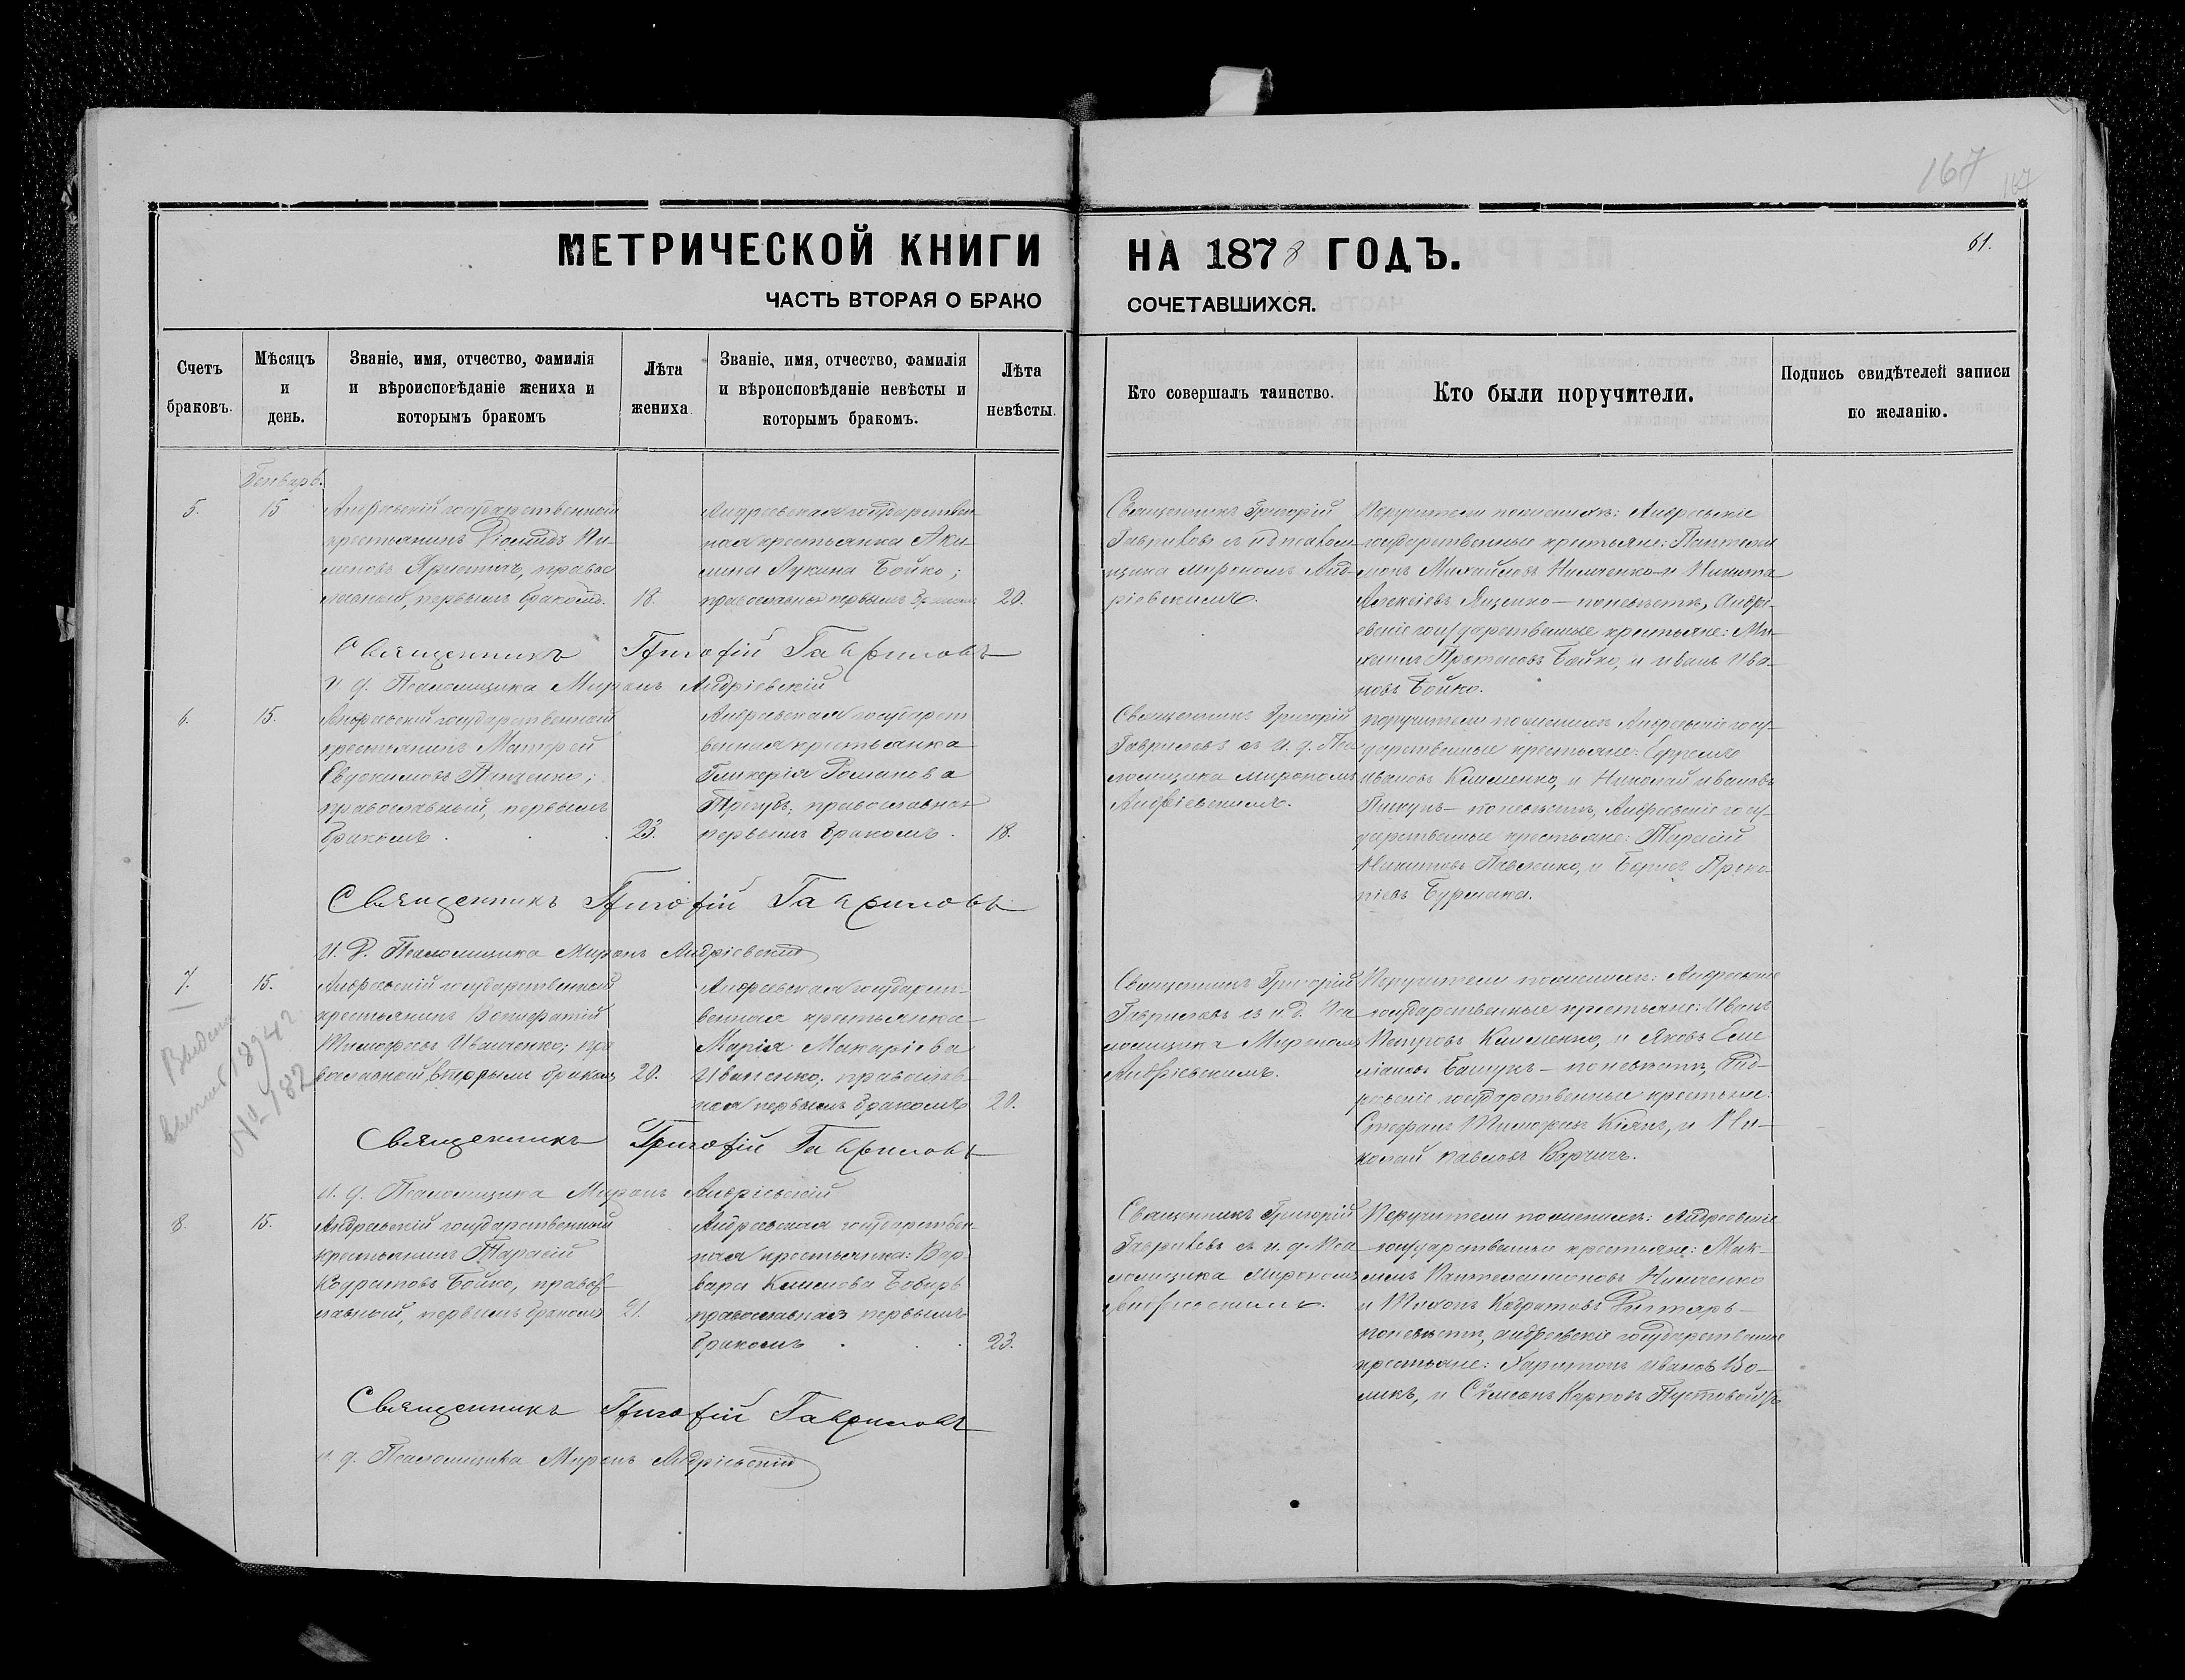 167
167
МЕТРИЧЕСКОЙ КНИГИ
НА 1878 ГОДЪ.
61.
ЧАСТЬ ВТОРАЯ О БРАКО
СОЧЕТАВШИХСЯ.
Счетъ
браковъ.
Мѣсяцъ
и
день.
Званіе, имя, отчество, фамилія
и вѣроисповѣданіе жениха и
которымъ бракомъ
Лѣта
жениха
Званіе, имя, отчество, фамилія
и вѣроисповѣданіе невѣсты и
которымъ бракомъ.
Лѣта
невѣсты.
Кто совершалъ таинство.
Кто были поручители.
Подпись свидѣтелей записи
по желанію.
Генварь.
5.
15
Андреевскій государственный
крестьянинъ Діомидъ Пи-
меновъ православ
ный, первымъ бракомъ.
18.
Андреевская государствен
ная крестьянка Аки
лина Лукина Бойко;
православная первымъ бракомъ
20.
Священникъ Григорій
Гавриловъ съ и д псалом
щика Мирономъ Анд-
ріевскимъ.
Поручители по женихѣ: Андреевскіе
государственные крестьяне: Пантелей
монъ Михайловъ Нимченко и Никита
Алексіевъ Яценко — по невѣстѣ, Андре-
евскіе государственные крестьяне: Ми-
хаилъ Бойко, и Иванъ Ива-
новъ Бойко.
Священникъ Григорій Гавриловъ
и д. Псаломщика Миронъ Андріевскій
6.
15.
Андреевскій государственный
крестьянинъ Матфей
Евдокимовъ
православный, первымъ
бракомъ.
23.
Андреевская государст
венная крестьянка
Гликерія Романова
Трегубъ; православная
первымъ бракомъ.
18.
Священникъ Григорій
Гавриловъ съ и. д. Пса
ломщика Мирономъ
Андріевскимъ.
поручители по женихѣ Андреевскіе госу-
дарственные крестьяне:
Ивановъ Клименко, и Николай Ивановъ
по невѣстѣ, Андреевскіе госу-
дарственные крестьяне: Тарасій
Никитовъ Павленко, и Проко-
піевъ Бурлака.
Священникъ Григорій Гавриловъ
И. Д. Псаломщика Миронъ Андріевскій
7.
15.
Андреевскій государственный
крестьянинъ Вонифатій
Тимофеевъ Иванченко; пра
вославный, вторымъ бракомъ
20.
Андреевская государст-
венная крестьянка
Марія Макаріева
Иваненко; православ-
ная первымъ бракомъ
20.
Священникъ Григорій
Гавриловъ съ и. д. Пса
ломщика Мирономъ
Андріевскимъ.
Поручители по женихѣ: Андреевскіе
государственные крестьяне: Иванъ
Петровъ Клименко, и Яковъ Еме
ліановъ — по невѣстѣ, Анд-
реевскіе государственные крестьяне:
Стефанъ Тимофеевъ Кіянъ, и Ни-
колай Павловъ
Выдана
выпись 1894 г.
№ 182
Священникъ Григорій Гавриловъ
и. д. Псаломщика Миронъ Андріевскій
8.
15.
Андреевскій государственный
крестьянинъ Тарасій
Кодратовъ Бойко, правос-
лавный, первымъ бракомъ
21.
Андреевская государствен
ная крестьянка: Вар-
вара Климова Бобырь
православная первымъ
бракомъ.
23.
Священникъ Григорій
Гавриловъ съ и. д. Пса
ломщика Мирономъ
Андріевскимъ.
Поручители по женихѣ: Андреевскіе
государственные крестьяне: Мак-
симъ Пантелеимоновъ Нимченко
и Тихонъ Кодратовъ
по невѣстѣ, андреевскіе государственные
крестьяне: Харитонъ Ивановъ Во-
ликъ, и Сѵмеонъ Карповъ
Священникъ Григорій Гавриловъ
и. д. Псаломщика Миронъ Андріевскій